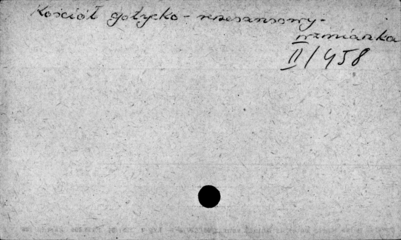 Kościół gotycko-renesansowy-
wzmianka
II/458